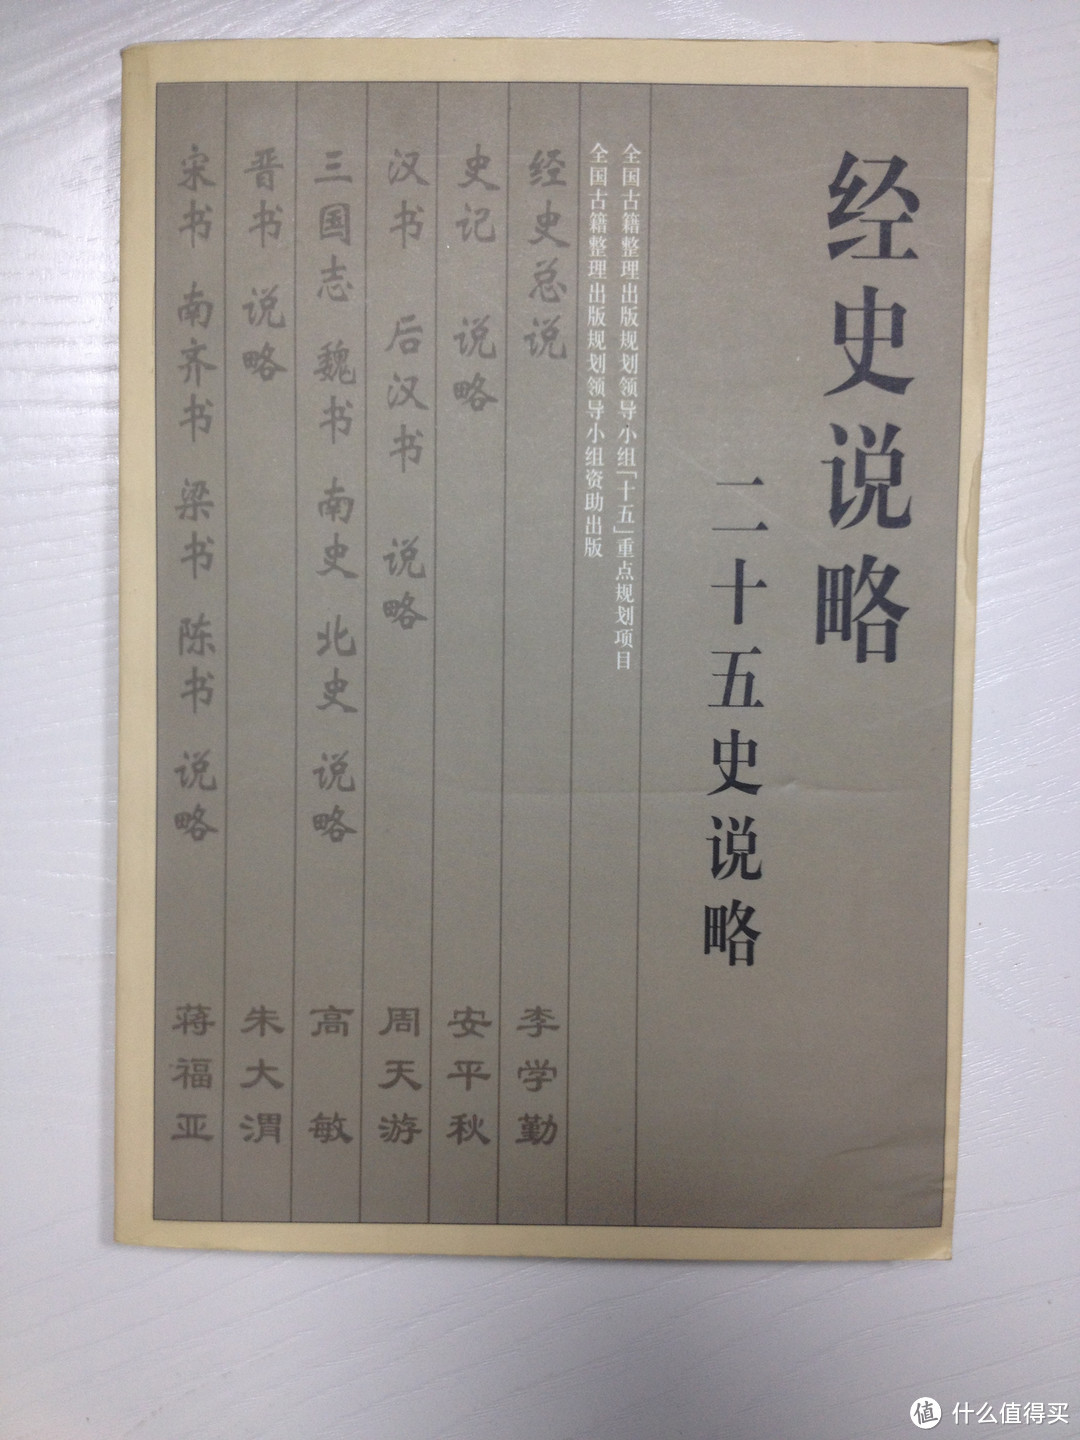 经史说略
二十五史说略
全国古籍整理出版规划领导小组「十五」重点规划项目
全国古籍整理出版规划领导小组资助出版
经史总说 李学勤
史记 说略 安平秋
汉书 后汉书 说略 周天游
三国志 魏书 南史 北史 说略 高敏
晋书 说略 朱大渭
宋书 南齐书 梁书 陈书 说略 蒋福亚
值 什么值得买